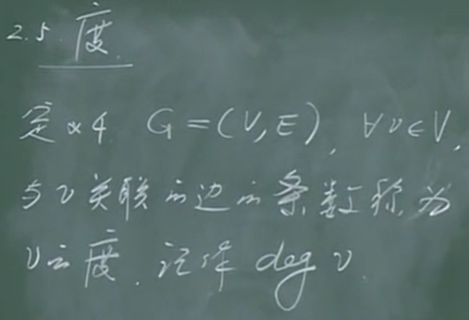 2.5. 度.
定义4 G=(V,E), ∀v∈V,
与v关联的边的条数称为
v的度. 记作 deg v.